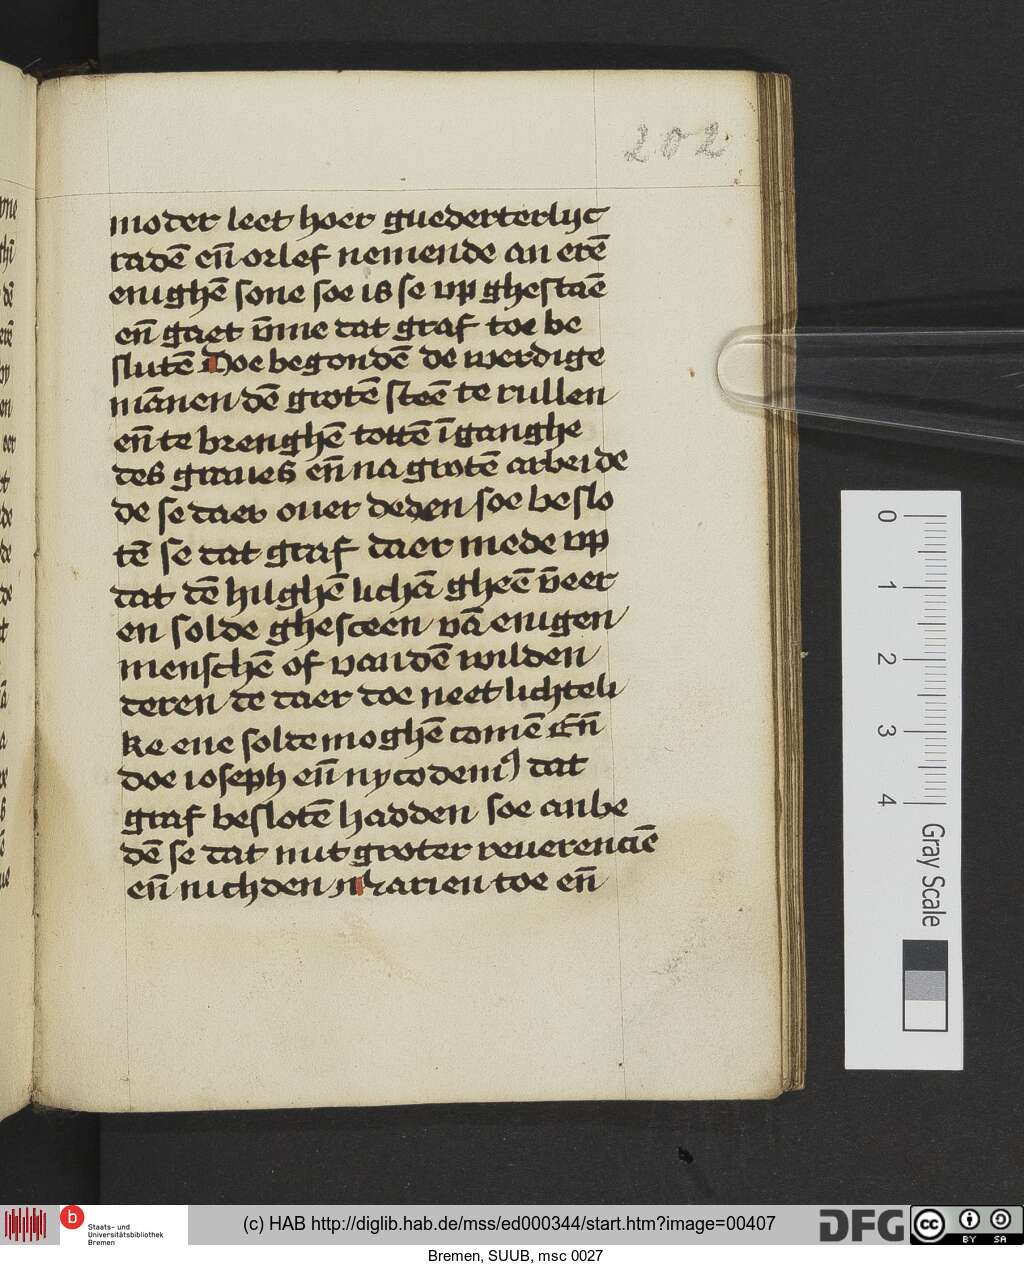 202
moder leet hoer guedertterlijc
radē eñ orlef nemende an erē
enighē sone soe is se vp ghestaē
eñ gaet vm̄e dat graf toe be
slutē Doe begondē de werdige
mānen dē grotē steē te rullen
eñ te brenghē tottē īganghe
des graues eñ na grotē arbeide
de se daer ouer deden soe beslo
tē se dat graf daer mede vp
dat dē hilghē lichā gheē v̄eer
en solde ghesceen vā enigen
menschē of van dē wilden
deren de daer toe neet lichteli
ke ene solde moghē comē Eñ
doe ioseph eñ nycodemꝰ dat
graf beslotē hadden soe anbe
dē se dat mit groter reuerenciē
eñ nichden Marien toe eñ
0
1
2
3
4
Gray Scale
b
Staats- und
Universitätsbibliothek
Bremen
(c) HAB http://diglib.hab.de/mss/ed000344/start.htm?image=00407
DFG
cc
BY SA
Bremen, SUUB, msc 0027